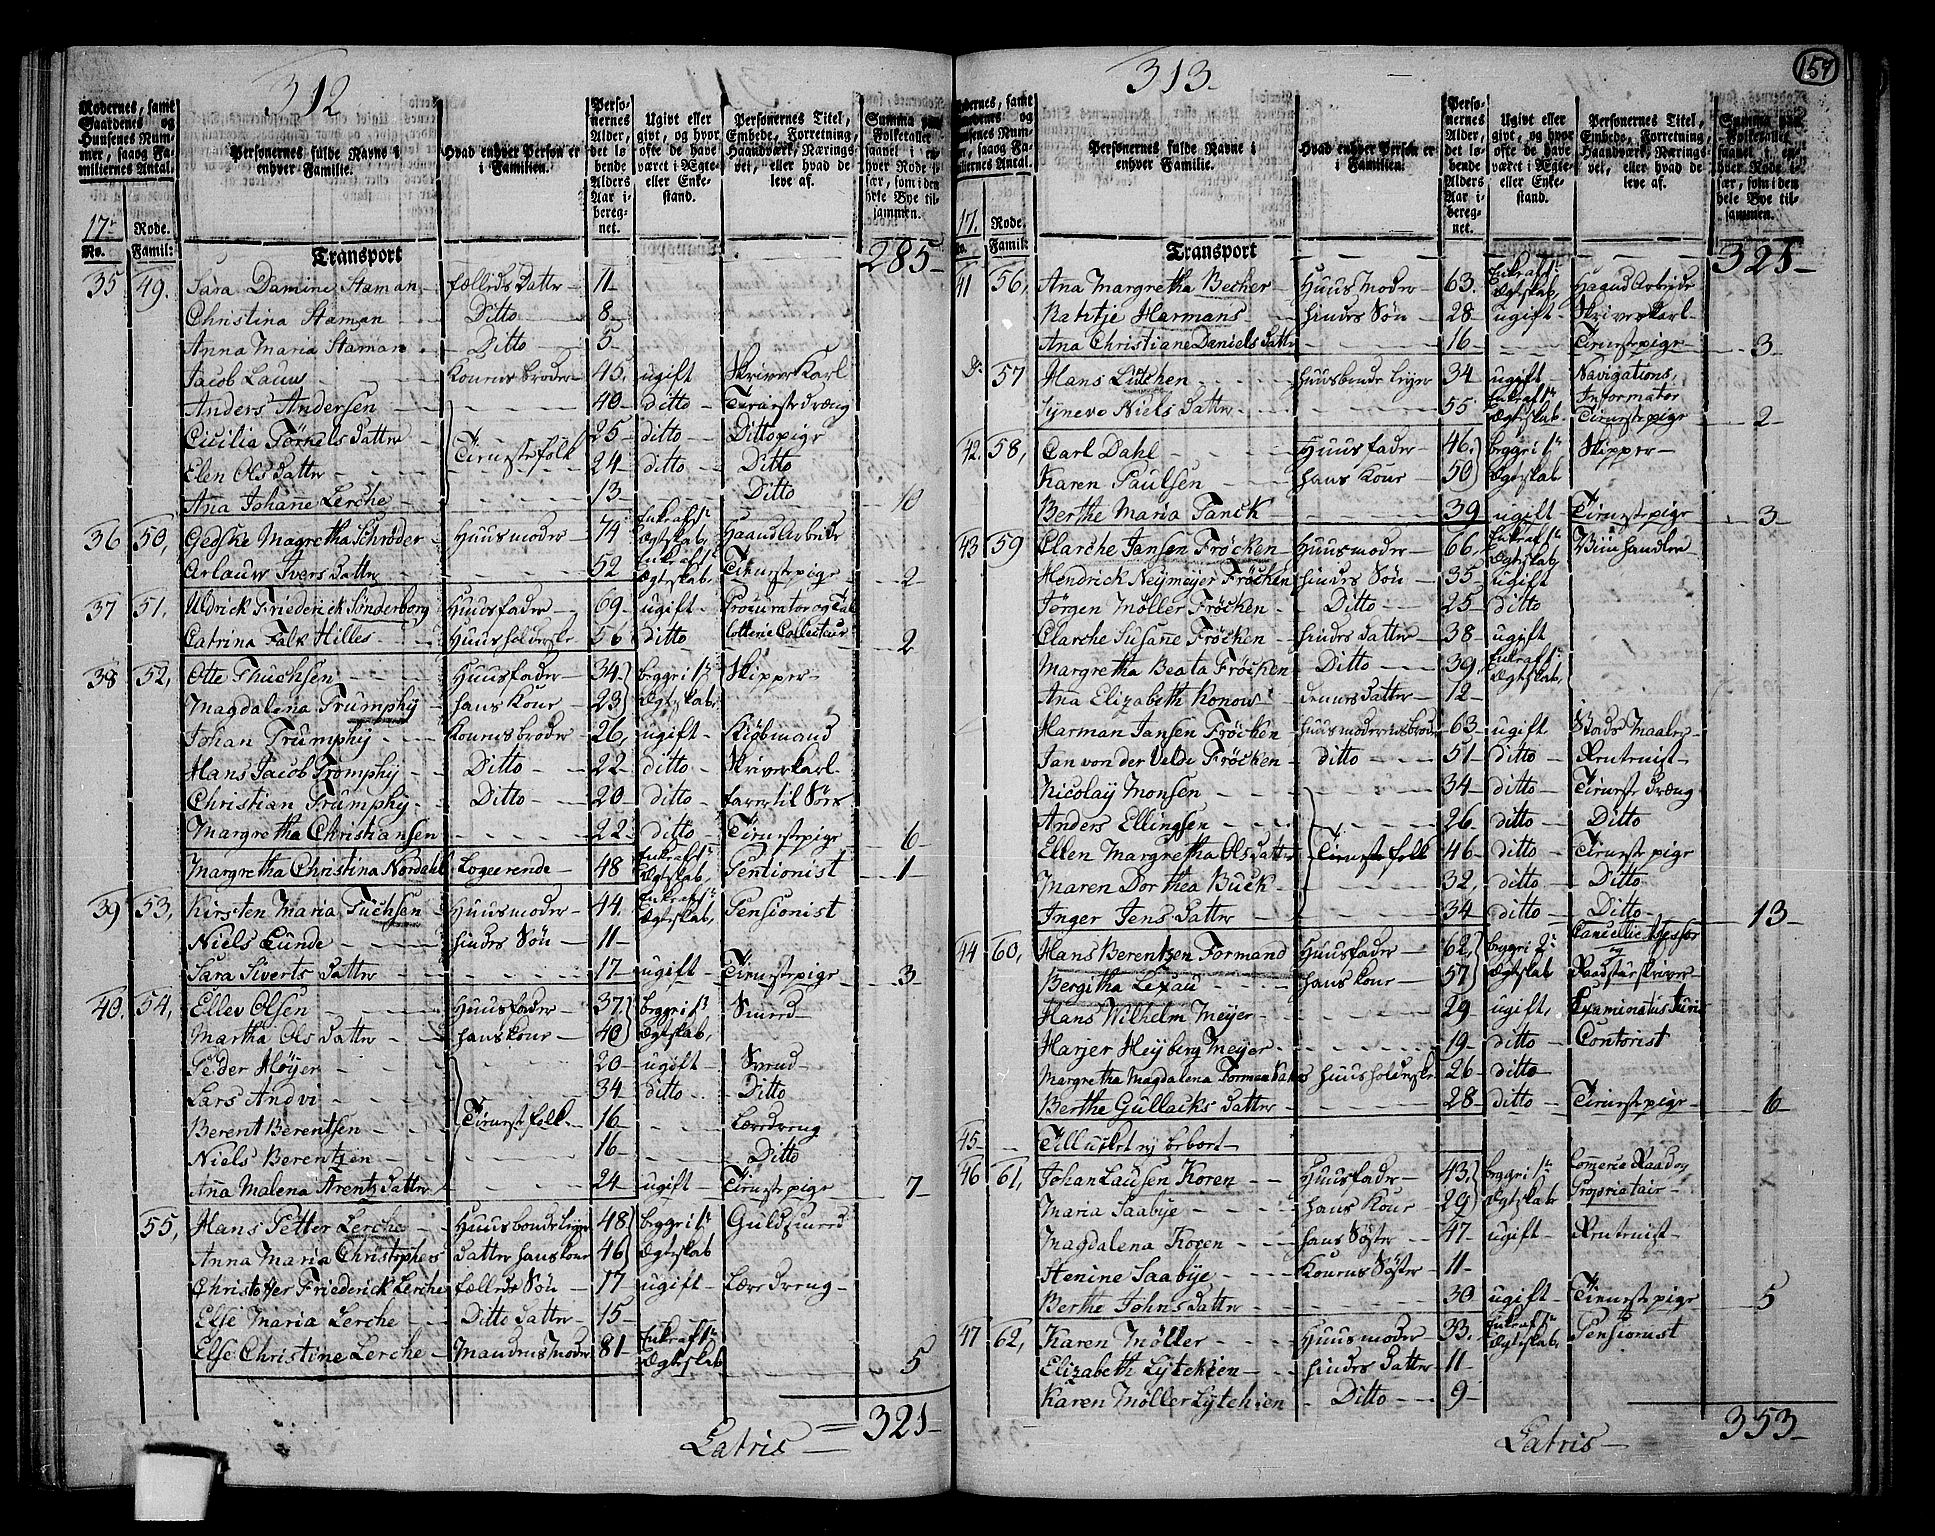 312
Rodernes, samt Gaardenes og Huusenes Nummer, saavog Familiernes Antal.
Personernes fulde Navne i enhver Familie.
Hvad enhver Person er i Familien.
Personernes Alder, det løbende Alders Aar iberegnet.
Ugivt eller givt, og hvor ofte de have været i Ægte- eller Enkestand.
Personernes Titel, Embede, Forretning, Haandværk, Næringsvei, eller hvad de leve af.
17. Rode.
No. Famil:
Transport 285
35 49. Sara Damine Staman fælleds Datter 11
Christina Staman Ditto 8
Anna Maria Staman Ditto 5
Jacob Lauw Konens broder 45. ugift Skriver Karl
Anders Andersen 40 ditto Tienestedreng
Cicilia Törnels Datter Tienestefolk 25 ditto Ditto pige
Elen Ols Datter 24 ditto Ditto
Ana Johanne Lerche 13 Ditto 10
36 50, Gedske Magretha Schrøder Huusmoder 74 Enke af 1te Ægteskab, Haandarbeide
Arlauw Ivers Datter 52 Enke af 1te Ægteskab, Tienestepige 2
37 51, Uldrick Friederick Sønderborg Huusfader 69 ugift Procurator og Tal
Catrina Falk Hilles Huusholderske 56 ditto Lotterie Collecteur 2
38 52, Otte Thuchsen Huusfader 34 begge i 1te Skipper
Magdalena Trumphy hans Kone 23 Ægteskab,
Johan Trumphy Konens broder 26, ugift Kiøbmand
Hans Jacob Tromphy Ditto 22 ditto Skriverkarl
Christian Trumphy Ditto 20 ditto farer til Søes
Margretha Christiansen 22 ditto Tienestepige 6
Margretha Christina Nordahl Logerende 48 Enke af 1te Ægteskab, Pentionist 1
39 53, Kirsten Maria Tuchsen Huusmoder 44. Enke af 1te Ægteskab, Pensionist
Niels Lunde hindes Søn 11
Sara Siverts Datter 17 ugift Tienestepige 3
40. 54, Ellev Olsen Huusfader 37 begge i 1te Smed
Martha Ols Datter hans Kone 40 Ægteskab,
Peder Høyer 20 ugift Svend
Lars Andvi 34 ditto Ditto
Berent Berentsen Tienestefolk 16 Læredreng
Niels Berentzen 16 Ditto
Ana Malena Arentz Datter 24 ugift Tienestepige 7
55, Hans Petter Lerche Huusbonde Lejer 48 begge i 1te Guldsmed
Anna Maria Christophers Datter hans Kone 46 Ægteskab
Christoffer Friederick Lerche fælleds Søn 17 ugift Læredreng
Else Maria Lerche Ditto Datter 15
Else Christine Lerche Mandens Moder 81 Enke af 1te Ægteskab 5
Latris 321
157
313
Personernes fulde Navne i enhver Familie.
Hvad enhver Person er i Familien.
Personernes Alder, det løbende Alders Aar iberegnet.
Ugivt eller givt, og hvor ofte de have været i Ægte- eller Enkestand.
Personernes Titel, Embede, Forretning, Haandværk, Næringsvei, eller hvad de leve af.
17. Rode.
Famil:
Transport 321
41 56, Ana Margretha Becher Huus Moder 63. Enke af 1te Ægteskab, Haand Arbeide
Natitje Harmans hindes Søn 28 ugift Skriver Karl
Ana Christiane Daniels Datter 16 Tienestepige 3
Do 57 Hans Lütchen Huusbonde Lejer 34 ugift Navigations, Informator
Synevo Niels Datter 55 Enke af 1te Ægteskab, Tienestepige 2
42. 58, Carl Dahl Huusfader 46. begge i 1te Skipper
Karen Paulsen hans Kone 50 Ægteskab
Berthe Maria Fanck 39 ugift Tienestepige 3
43 59 Clarche Jansen Fröchen Huusmoder 66. Enke af 1te Ægteskab, Viinhandler
Hendrick Neymeyer Fröchen hindes Søn 35 ugift
Jørgen Møller Fröchen Ditto 25 ditto
Clarche Susane Fröchen hindes Datter 38 ugift
Margretha Beata Fröchen Ditto 39 Enke af 1te Ægteskab,
Ana Elizabeth Konow dennes Datter 12
Harman Jansen Fröchen huusmoderens broder 63 ugift Maaler
Jan von der Velde Fröchen ditto 51 ditto Rentenist
Nicolay Monsen 34 ditto Tieneste Dreng
Anders Ellingsen 26 ditto Ditto
Ellen Margretha Ols Datter Tienestefolk 46 ditto Tienestepige
Maren Dorthea Buck 32, ditto Ditto
Inger Jens Datter 34 ditto Ditto 13
44 60, Hans Berentzen Formand Huusfader 62 begge i 2de Cancellie Assessor og
Bergitha Lexau hans Kone 57 Ægteskab Raadstueskriver
Hans Wilhelm Meyer 29 ugift, Examinatus Juris
Harjer Heyberg Meyer 19 ditto Contorist
Margretha Magdalena Huusholderske 26 ditto
Berthe Gullacks Datter 28 ditto Tienestepige 6
45 Tillucket ej beboet
46 61, Johan Lausen Koren Huusfader 43. begge i 1te Commerce Raad og
Maria Saabye hans Kone 29 Ægteskab Proprietair
Magdalena Koren hans Søster 47 ugift Rentenist
Henine Saabye Konens Søster 11
Berthe Johns Datter 30 ugift Tienestepige 5
47 62, Karen Møller Huusmoder 33. Enke af 1te Ægteskab, Pensionist
Elizabeth Lytchien hindes Datter 11
Karen Møller Lytchien Ditto 9
Latris 353